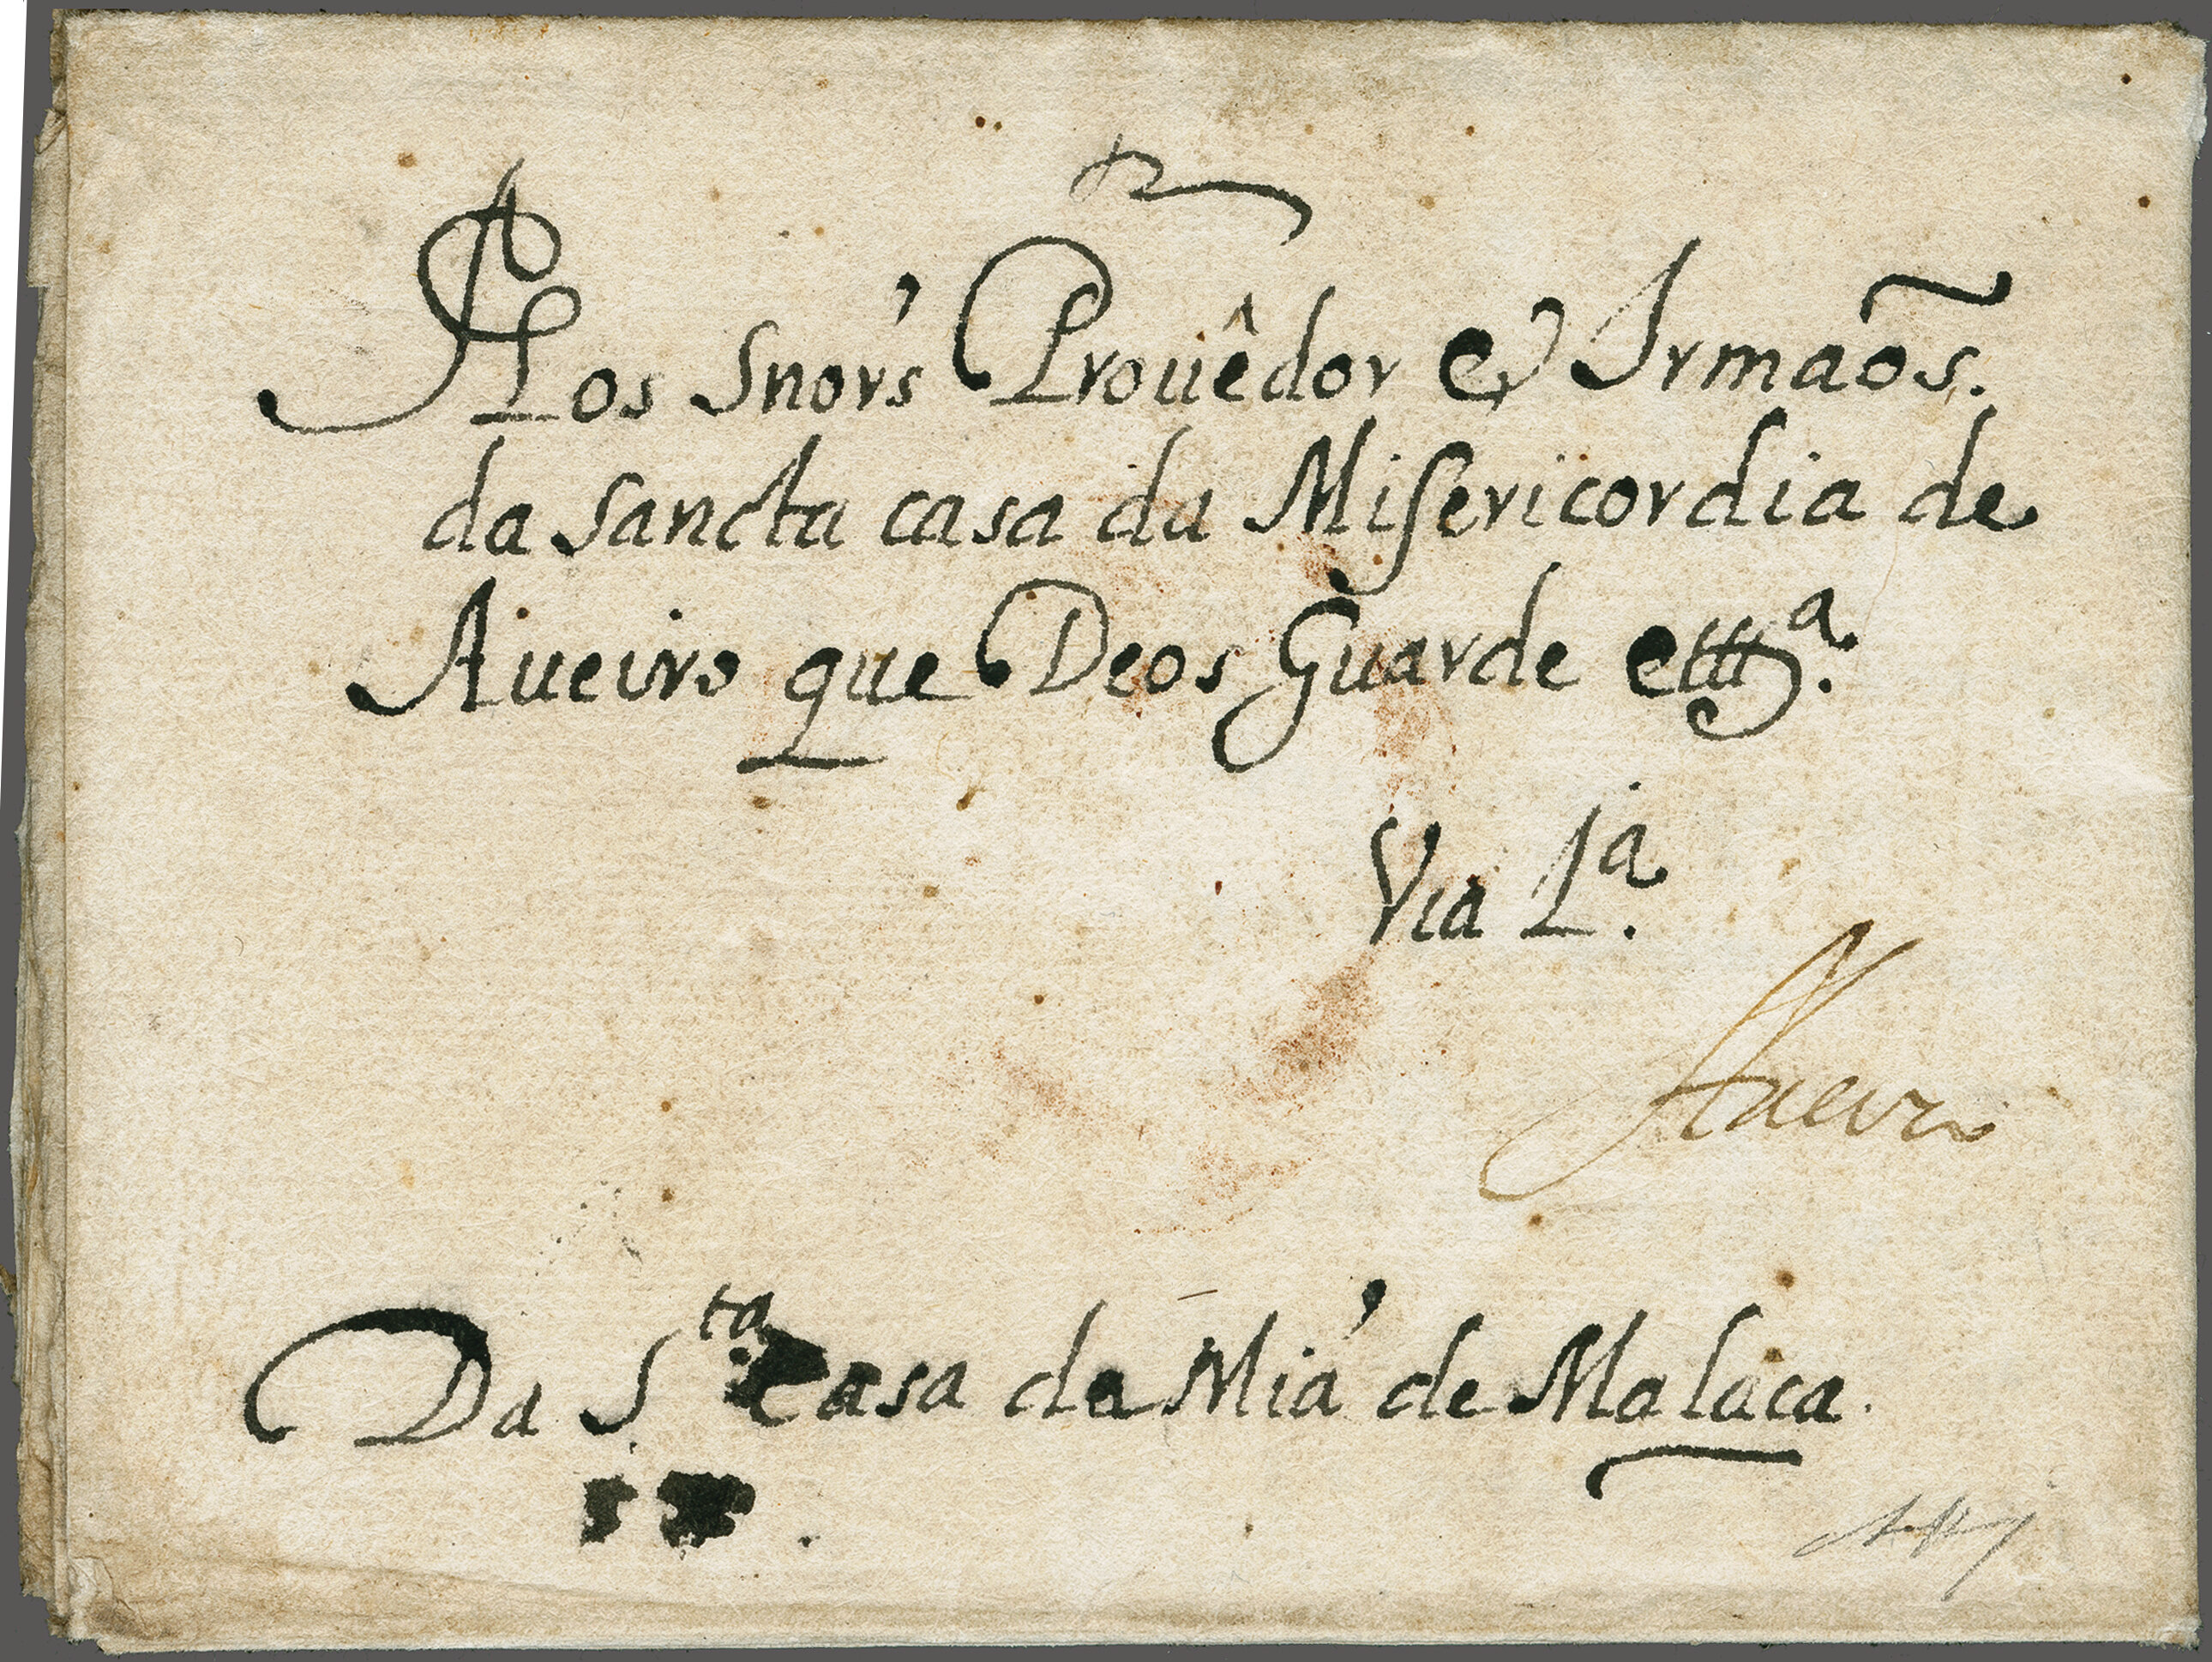 Aos Snor's Prouêdor e Irmaõs.
da sancta casa da Misericordia de
Aueiro que Deos Guarde ettª.
Via 1ª.
Aueiro
Da Sta Casa da Mia' de Malaca.